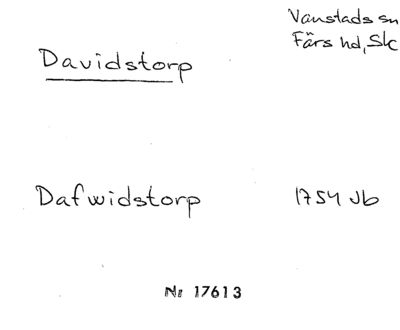 Vanstads sn
Färs hd, Sk
Davidstorp
Dafwidstorp
1754 Jb
Nr 17613